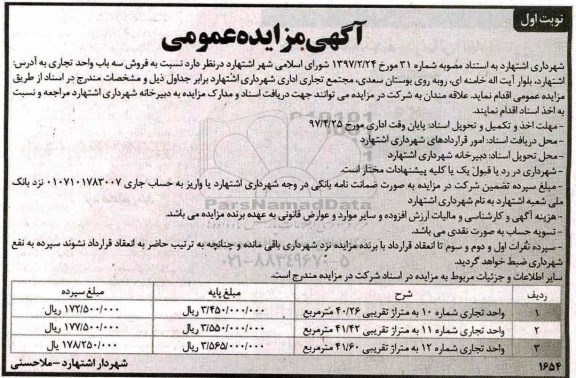 نوبت اول
آگهی مزایده عمومی
شهرداری اشتهارد به استناد مصوبه شماره ۳۱ مورخ ۱۳۹۷/۲/۲۴ شورای اسلامی شهر اشتهارد درنظر دارد نسبت به فروش سه باب واحد تجاری به آدرس:
اشتهارد، بلوار آیت اله خامنه ای، روبه روی بوستان سعدی، مجتمع تجاری اداری شهرداری اشتهارد برابر جداول ذیل و مشخصات مندرج در اسناد از طریق
مزایده عمومی اقدام نماید. علاقه مندان به شرکت در مزایده می توانند جهت دریافت اسناد و مدارک مزایده به دبیرخانه شهرداری اشتهارد مراجعه و نسبت
به اخذ اسناد اقدام نمایند.
- مهلت اخذ و تکمیل و تحویل اسناد: پایان وقت اداری مورخ ۹۷/۴/۲۵
- محل دریافت اسناد: امور قراردادهای شهرداری اشتهارد
- محل تحویل اسناد: دبیرخانه شهرداری اشتهارد
- شهرداری در رد یا قبول یک یا کلیه پیشنهادات مختار است.
- مبلغ سپرده تضمین شرکت در مزایده به صورت ضمانت نامه بانکی در وجه شهرداری اشتهارد یا واریز به حساب جاری ۰۱۰۷۱۰۱۷۸۳۰۰۷ نزد بانک
ملی شعبه اشتهارد به نام شهرداری اشتهارد
- هزینه آگهی و کارشناسی و مالیات ارزش افزوده و سایر موارد و عوارض قانونی به عهده برنده مزایده می باشد.
- تسویه حساب به صورت نقدی می باشد.
- سپرده نفرات اول و دوم و سوم تا انعقاد قرارداد با برنده مزایده نزد شهرداری باقی مانده و چنانچه به ترتیب حاضر به انعقاد قرارداد نشوند سپرده به نفع
شهرداری ضبط خواهد گردید.
سایر اطلاعات و جزئیات مربوط به مزایده در اسناد شرکت در مزایده مندرج است.
ردیف شرح مبلغ پایه مبلغ سپرده
۱ واحد تجاری شماره ۱۰ به متراژ تقریبی ۴۰/۲۶ مترمربع ۳/۴۵۰/۰۰۰/۰۰۰ ریال ۱۷۲/۵۰۰/۰۰۰ ریال
۲ واحد تجاری شماره ۱۱ به متراژ تقریبی ۴۱/۴۲ مترمربع ۳/۵۵۰/۰۰۰/۰۰۰ ریال ۱۷۷/۵۰۰/۰۰۰ ریال
۳ واحد تجاری شماره ۱۲ به متراژ تقریبی ۴۱/۶۰ مترمربع ۳/۵۶۵/۰۰۰/۰۰۰ ریال ۱۷۸/۲۵۰/۰۰۰ ریال
۱۶۵۴ شهردار اشتهارد - ملاحسنی
ParsNamadData
۰۲۱-۸۸۳۴۹۶۷۰-۵